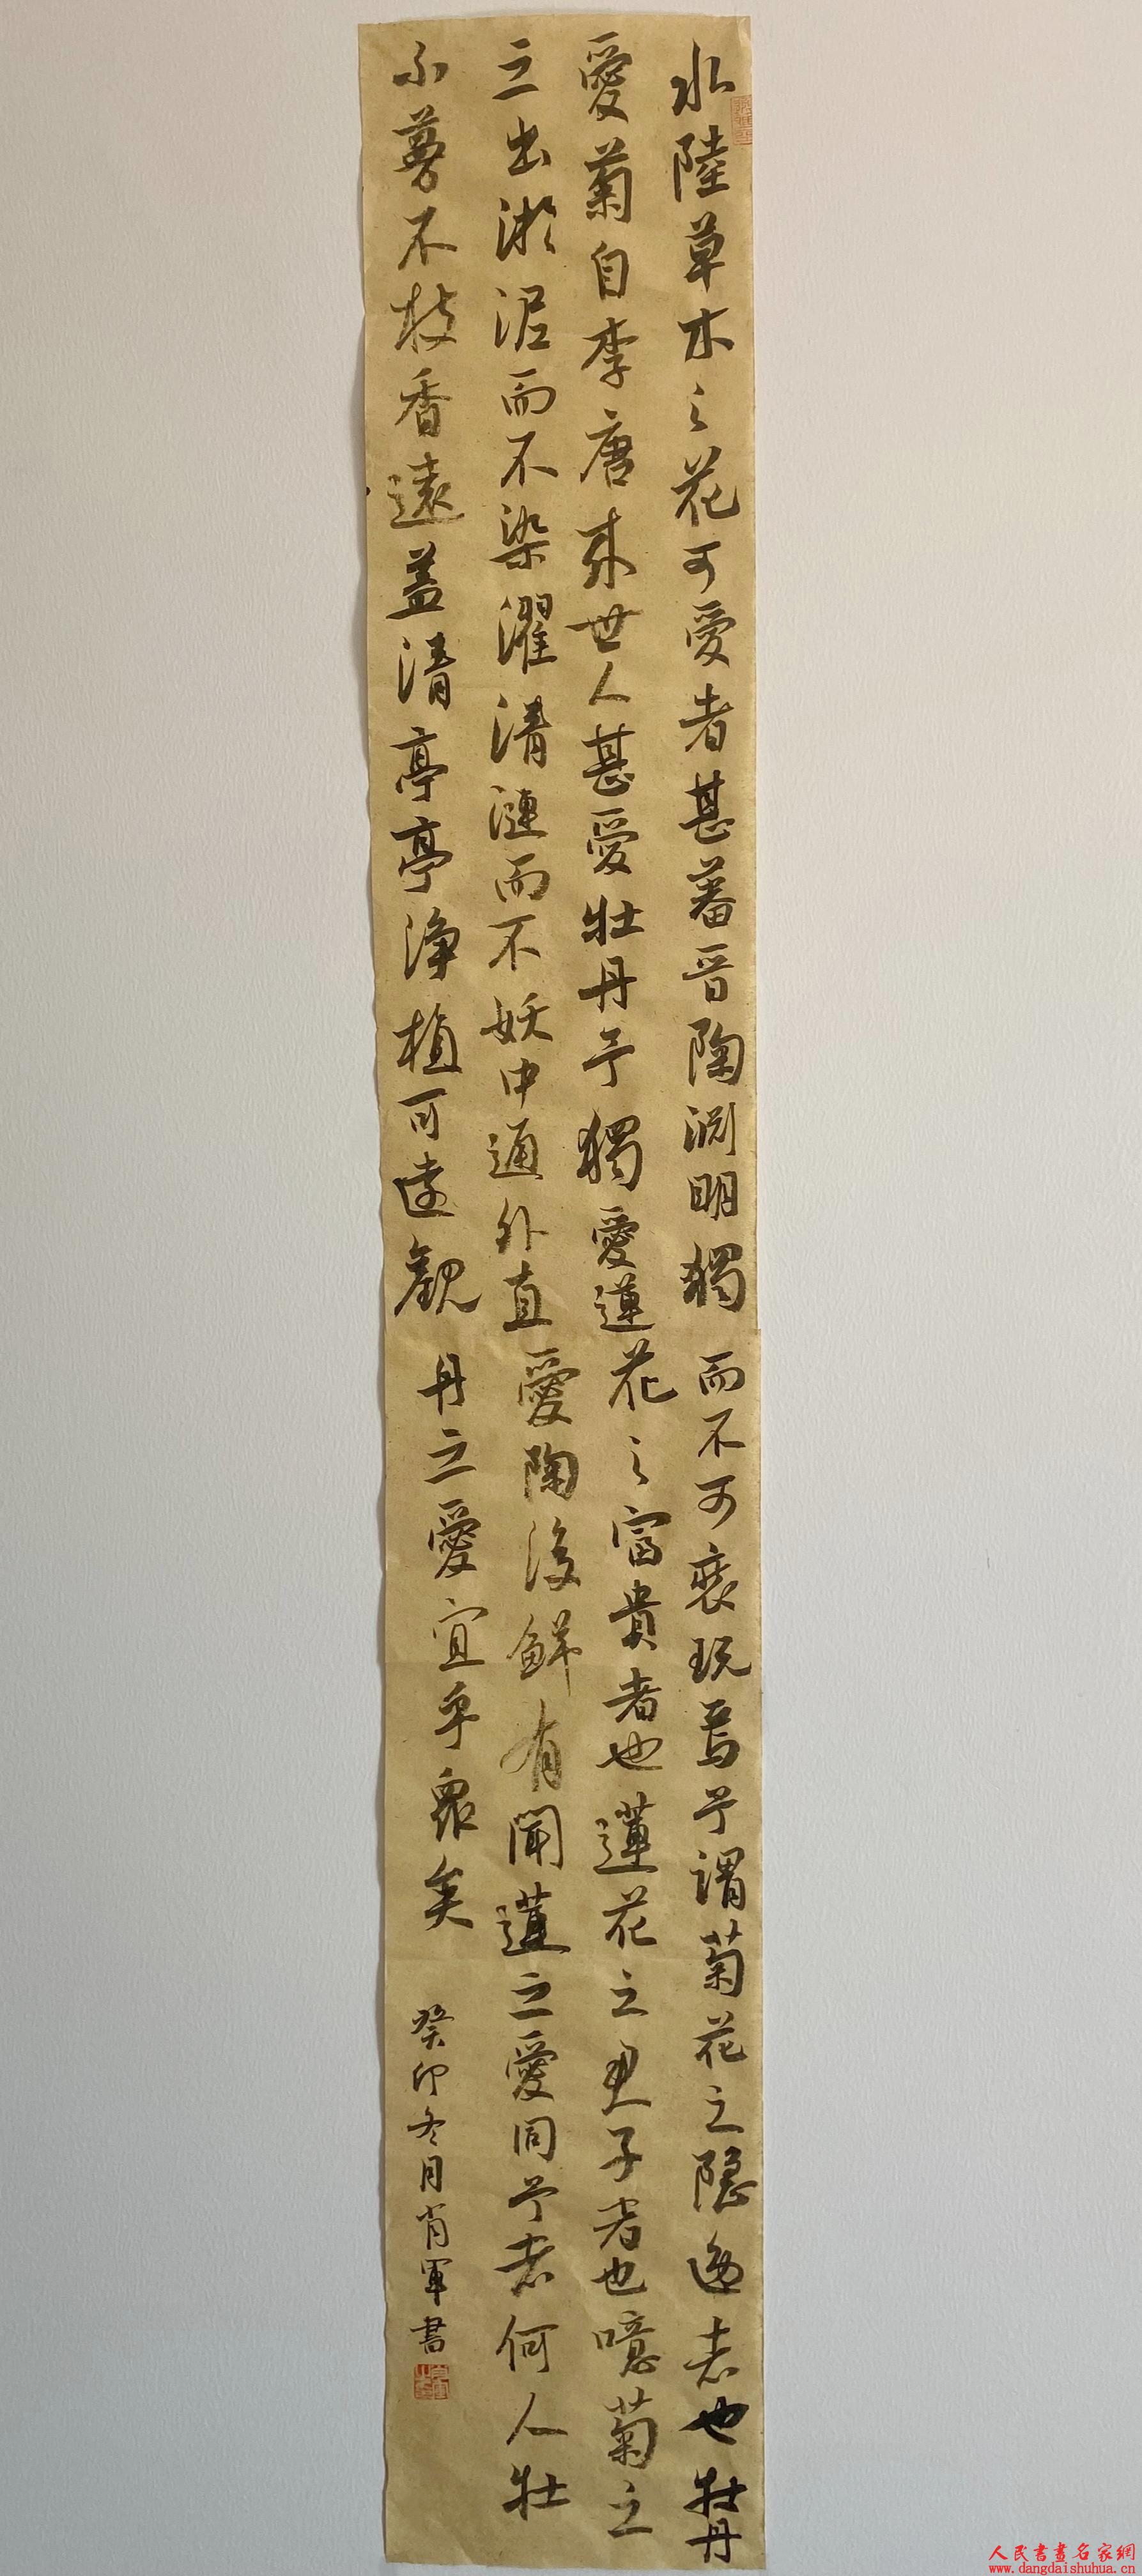 水陸草木之花可愛者甚蕃晉陶淵明獨
愛菊自李唐來世人甚愛牡丹予獨愛蓮
之出淤泥而不染濯清漣而不妖中通外直
不蔓不枝香遠益清亭亭淨植可遠觀
而不可褻玩焉予謂菊花之隱逸者也牡丹
花之富貴者也蓮花之君子者也噫菊之
愛陶後鮮有聞蓮之愛同予者何人牡
丹之愛宜乎衆矣
癸卯冬月肖軍書
人民書畫名家網
www.dangdaishuhua.cn